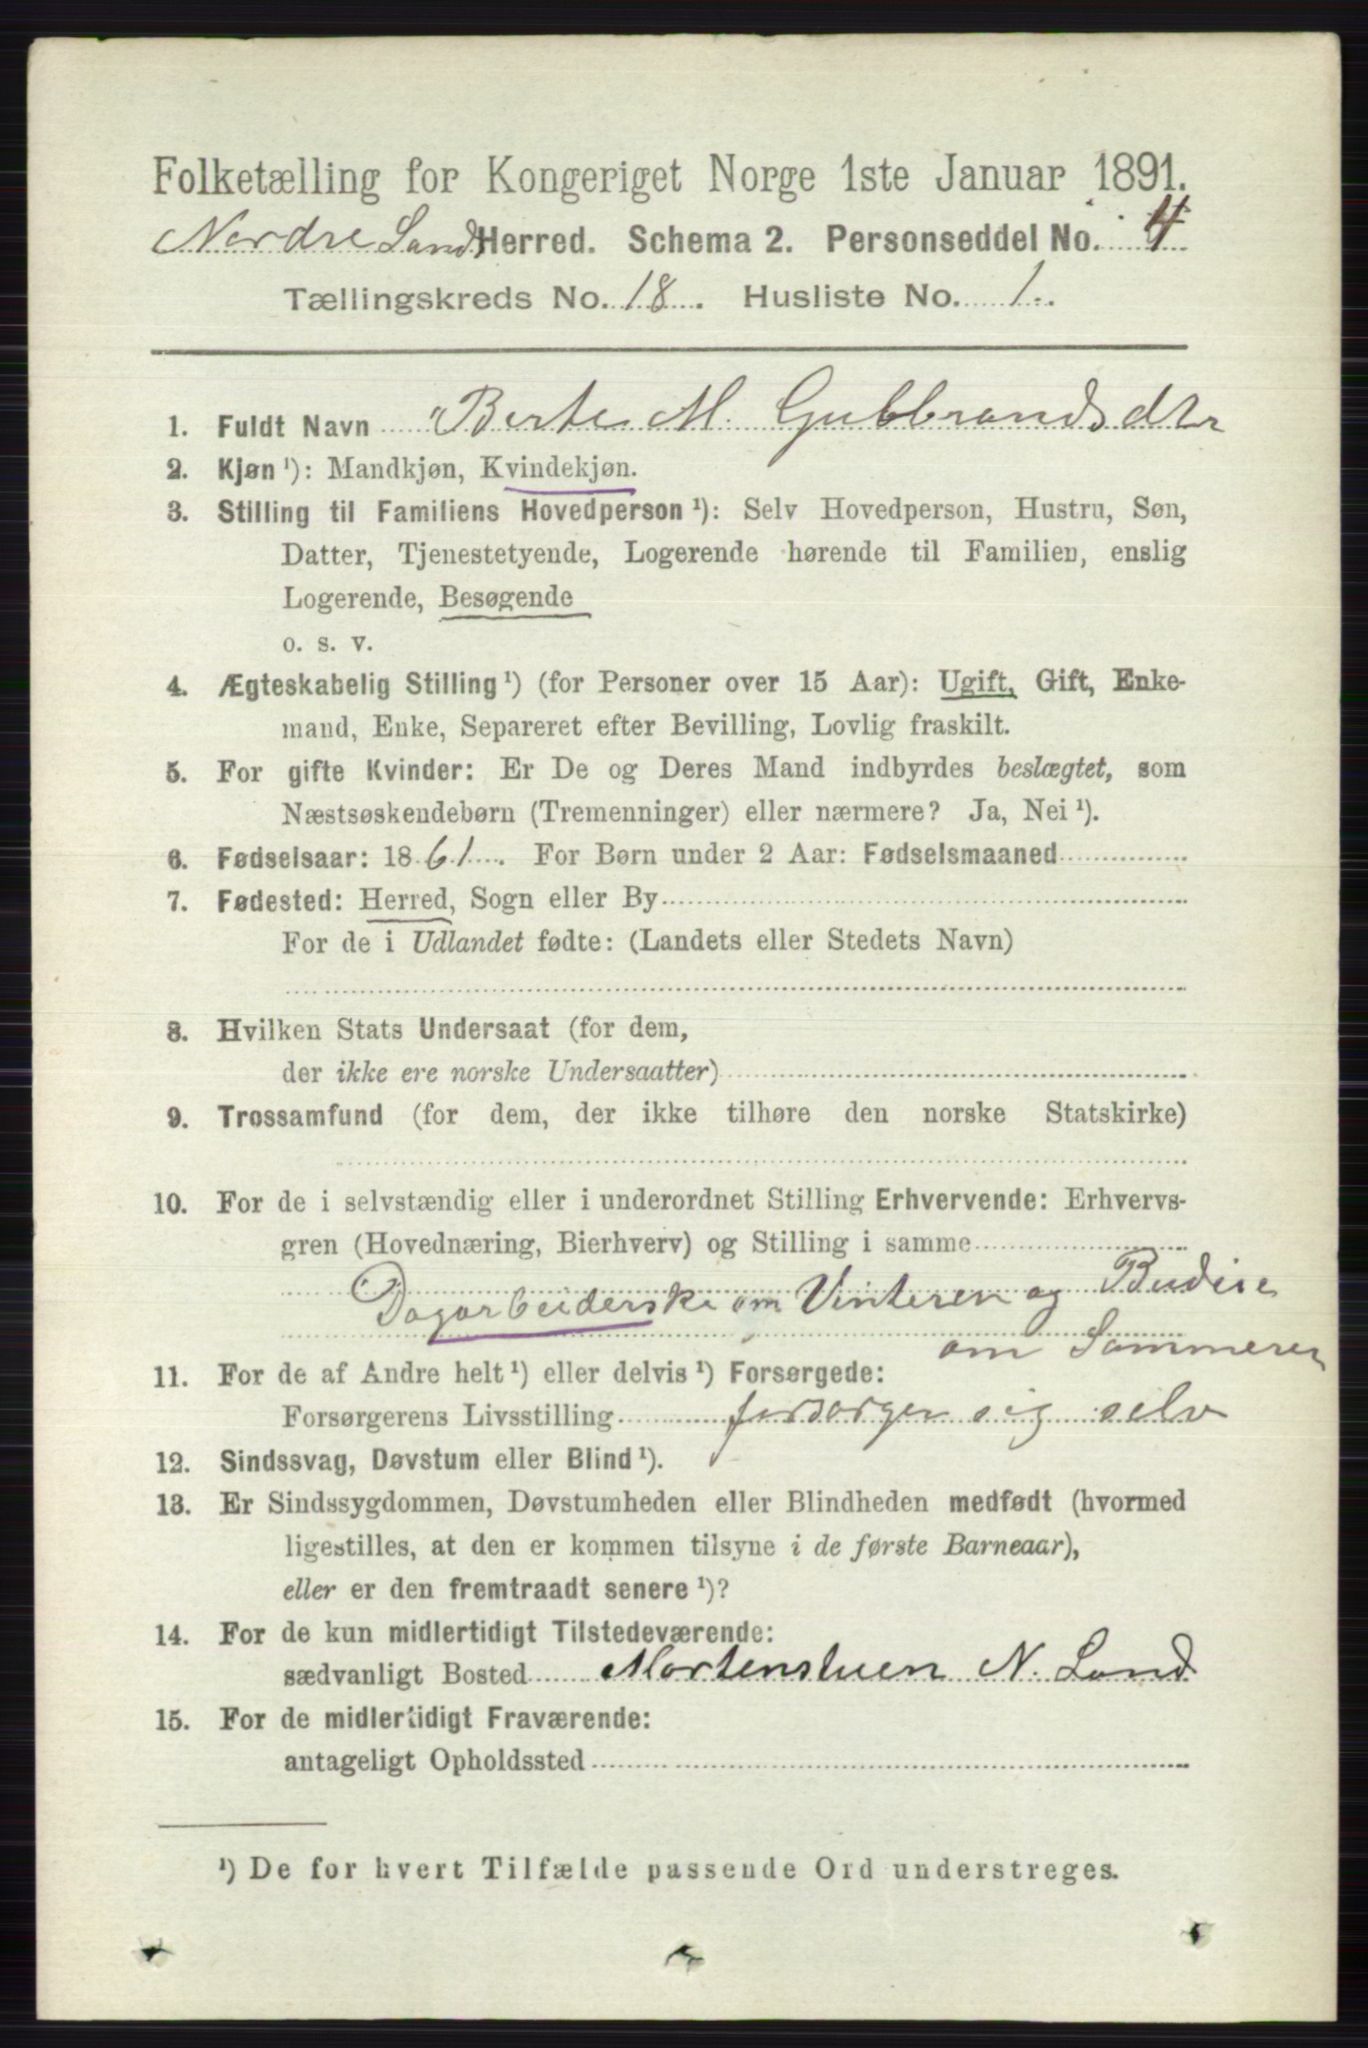 Folketælling for Kongeriget Norge 1ste Januar 1891.
Nordre Lands Herred. Schema 2. Personseddel No. 4
Tællingskreds No. 18. Husliste No. 1.
1. Fuldt Navn Berte M. Gubbrandsdtr
2. Kjøn ¹): Mandkjøn, Kvindekjøn.
3. Stilling til Familiens Hovedperson ¹): Selv Hovedperson, Hustru, Søn,
Datter, Tjenestetyende, Logerende hørende til Familien, enslig
Logerende, Besøgende
o. s. v.
4. Ægteskabelig Stilling ¹) (for Personer over 15 Aar): Ugift, Gift, Enke-
mand, Enke, Separeret efter Bevilling, Lovlig fraskilt.
5. For gifte Kvinder: Er De og Deres Mand indbyrdes beslægtet, som
Næstsøskendebørn (Tremenninger) eller nærmere? Ja, Nei ¹).
6. Fødselsaar: 1861. For Børn under 2 Aar: Fødselsmaaned
7. Fødested: Herred, Sogn eller By
For de i Udlandet fødte: (Landets eller Stedets Navn)
8. Hvilken Stats Undersaat (for dem,
der ikke ere norske Undersaatter)
9. Trossamfund (for dem, der ikke tilhøre den norske Statskirke)
10. For de i selvstændig eller i underordnet Stilling Erhvervende: Erhvervs-
gren (Hovednæring, Bierhverv) og Stilling i samme
Dagarbeiderske om Vinteren og Budeie
om Sommeren
11. For de af Andre helt ¹) eller delvis ¹) Forsørgede:
Forsørgerens Livsstilling forsørger sig selv
12. Sindssvag, Døvstum eller Blind ¹).
13. Er Sindssygdommen, Døvstumheden eller Blindheden medfødt (hvormed
ligestilles, at den er kommen tilsyne i de første Barneaar),
eller er den fremtraadt senere ¹)?
14. For de kun midlertidigt Tilstedeværende:
sædvanligt Bosted Mortenstuen N. Land
15. For de midlertidigt Fraværende:
antageligt Opholdssted
¹) De for hvert Tilfælde passende Ord understreges.